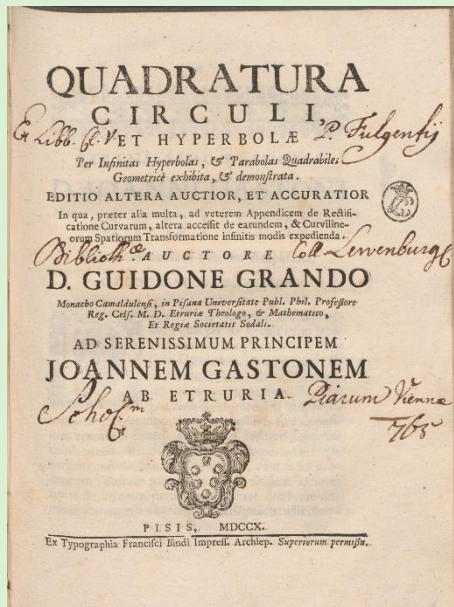 QUADRATURA
CIRCULI,
Ex Libb. cl. V. P. Fulgentij
ET HYPERBOLÆ
Per Infinitas Hyperbolas, & Parabolas Quadrabiles
Geometricè exhibita, & demonstrata.
EDITIO ALTERA AUCTIOR, ET ACCURATIOR
In qua, preter alia multa, ad veterem Appendicem de Rectifi-
catione Curvarum, altera accessit de earundem, & Curviline-
orum Spatiorum Transformatione infinitis modis expedienda.
Biblioth.æ Coll. Lewenburg
AUCTORE
D. GUIDONE GRANDO
Monacho Camaldulensi, in Pisana Universitate Publ. Phil. Professore
Reg. Cels. M. D. Etruriæ Theologo, & Mathematico,
Et Regiæ Societatis Sodali.
AD SERENISSIMUM PRINCIPEM
JOANNEM GASTONEM
AB ETRURIA.
Schol.m Piarum Viennæ
765
PISIS, MDCCX.
Ex Typographia Francisci Bindi Impress. Archiep. Superiorum permissu.